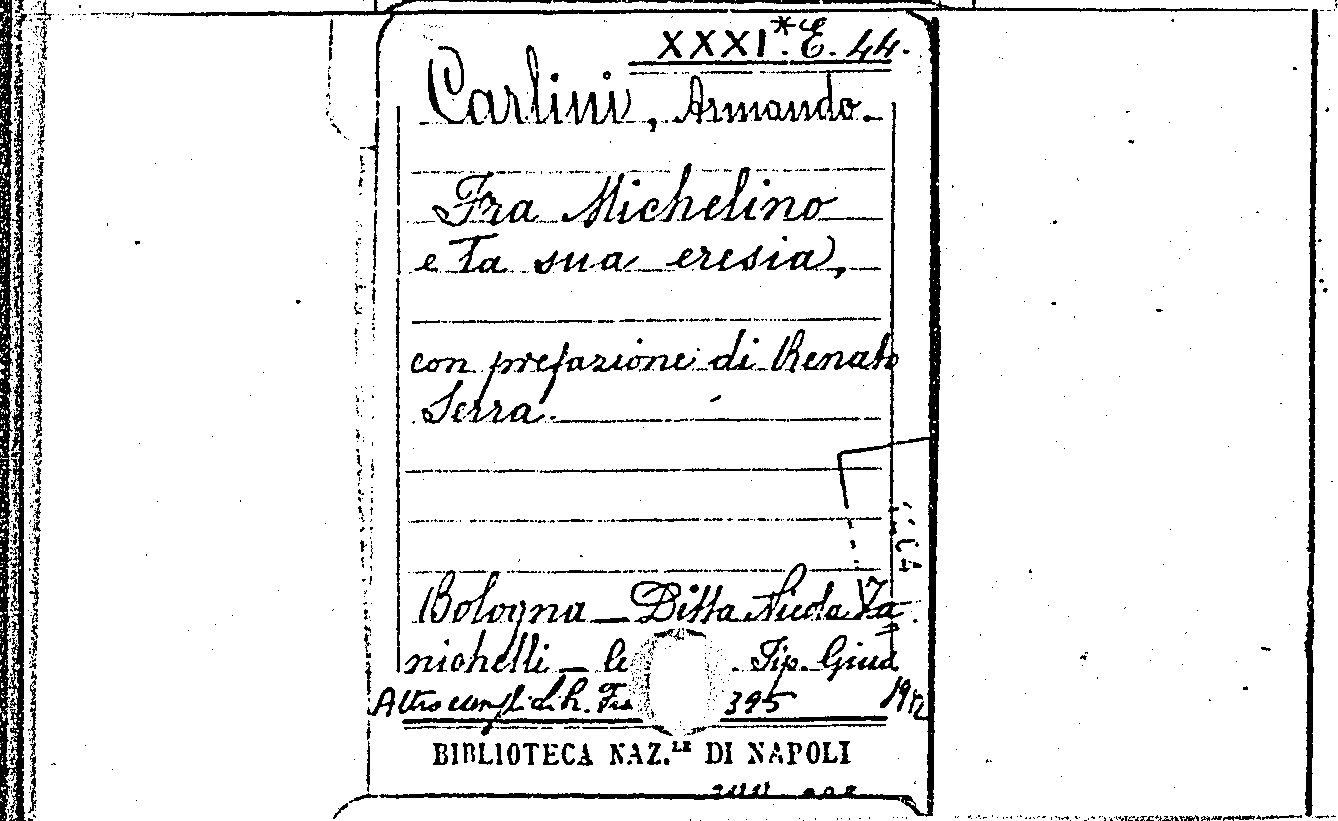 XXXI.* E. 44.
Carlini, Armando.
Fra Michelino
e la sua eresia,
con prefazione di Renato
Serra.
Bologna – Ditta Nicola Za
nichelli – . Tip. Giud.
Altro 395 1912
BIBLIOTECA NAZ.LE DI NAPOLI